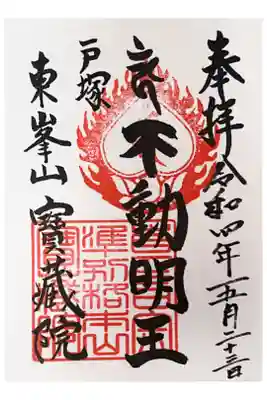 奉拝
令和四年五月二十三日
不動明王
戸塚
東峯山
寶蔵院